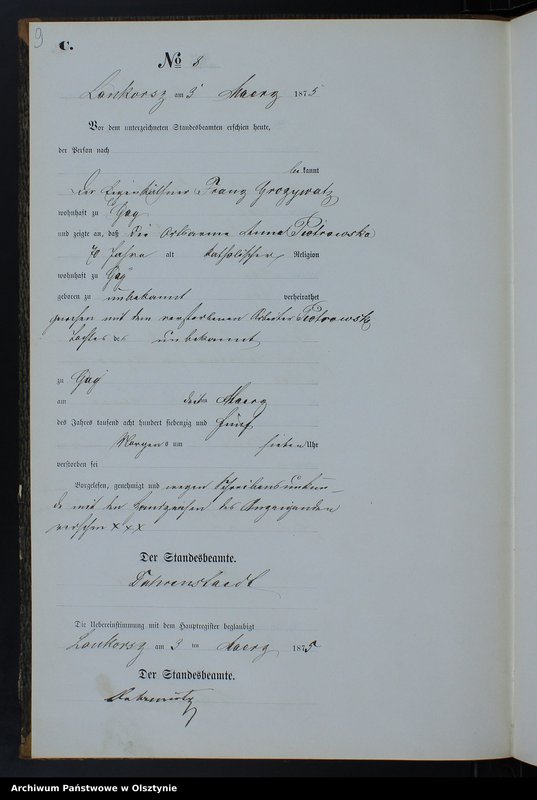 9
C.
No 8
Lonkorsz am 3 Maerz 1875
Vor dem unterzeichneten Standesbeamten erschien heute,
der Person nach
bekannt
der Eigenkäthner Franz
wohnhaft zu Gay
und zeigte an, daß die Ortsarme Anna Piotrowska
70 Jahre alt katholischer Religion
wohnhaft zu Gay
geboren zu unbekannt verheirathet
gewesen mit dem verstorbenen Arbeiter Piotrowski
Tochter des unbekannt
zu Gay
am Maerz
des Jahres tausend acht hundert siebenzig und fünf
Morgens um sieben Uhr
verstorben sei
Vorgelesen, genehmigt und wegen Schreibensunkun-
de mit den Handzeichen des Anzeigenden
versehen XXX
Der Standesbeamte.
Der Uebereinstimmung mit dem Hauptregister beglaubigt
Lonkorsz am 3 ten Maerz 1875
Der Standesbeamte.
Archiwum Państwowe w Olsztynie